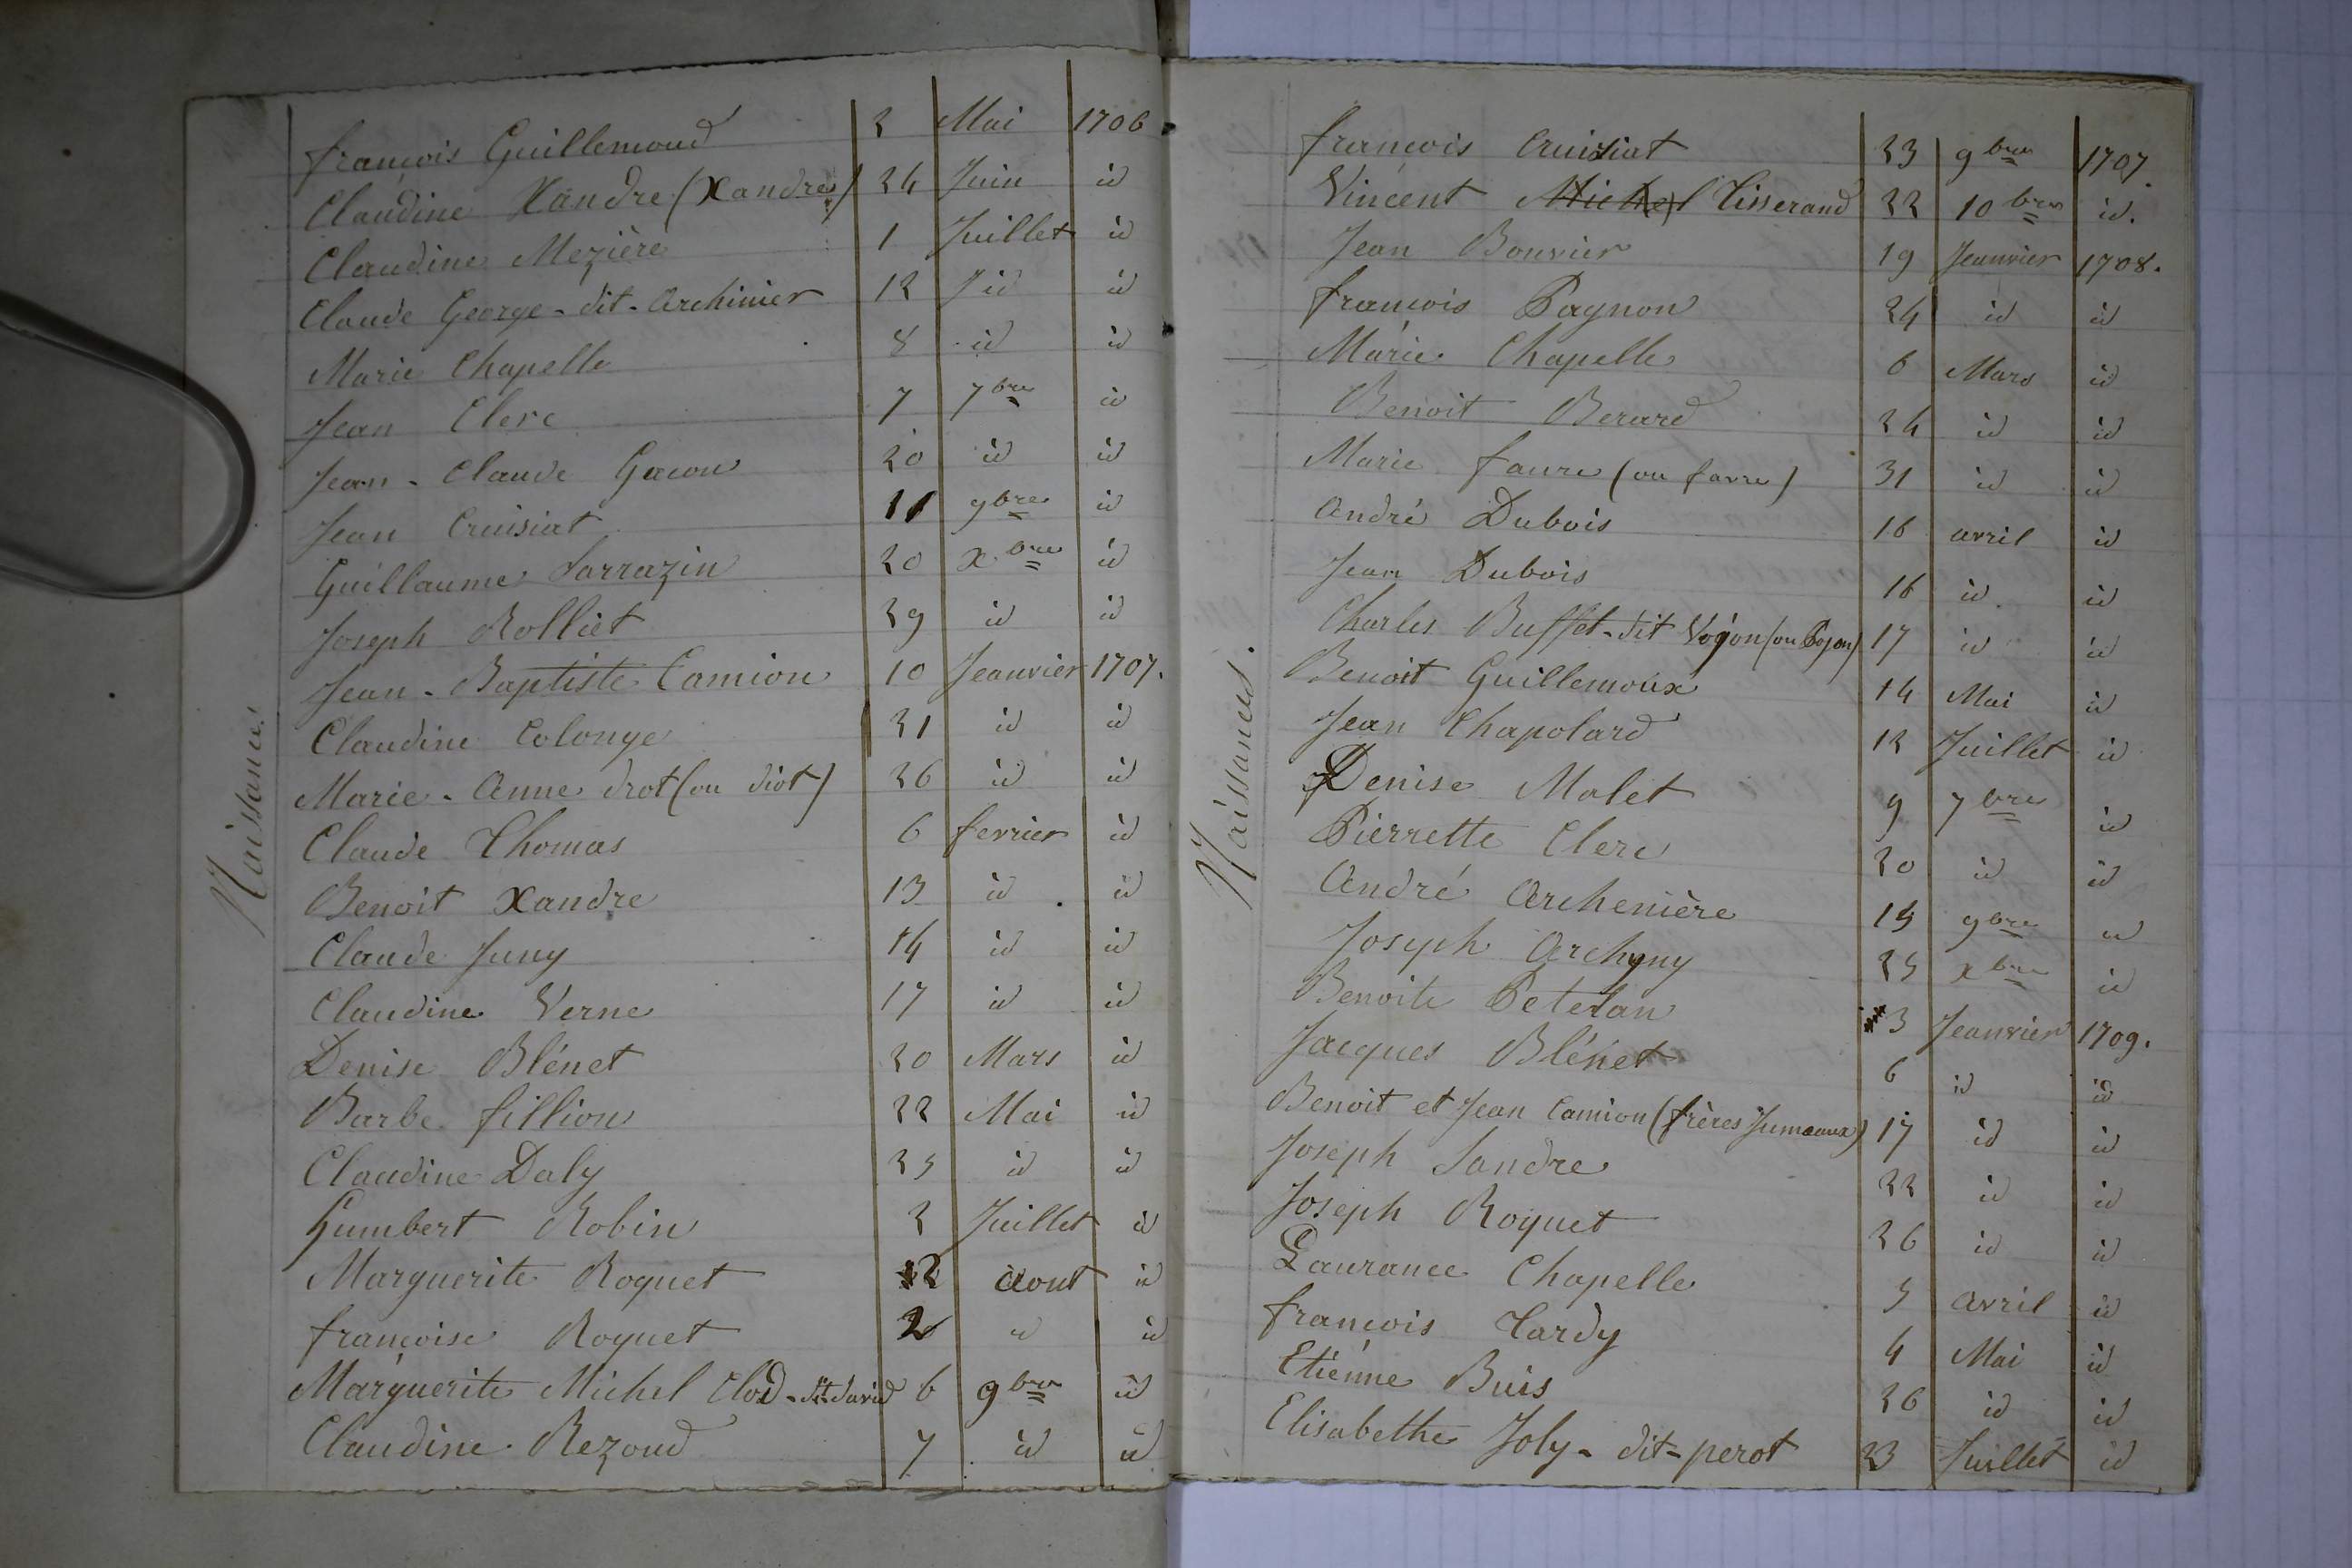 Naissances
françois Guillemoud 2 Mai 1706
Claudine Xandre (Xandres) 24 Juin id
Claudine Mezière 1 Juillet id
Claude George-dit-Archinier 12 id id
Marie Chapelle 8 id id
Jean Clerc 7 7bre id
Jean-Claude Gacon 20 id id
Jean Cruisiat 11 9bre id
Guillaume Sarrazin 20 xbre id
Joseph Rolliet 29 id id
Jean-Baptiste Camion 10 Jeanvier 1707.
Claudine Colonge 21 id id
Marie-Anne drot (ou diot) 26 id id
Claude Thomas 6 fevrier id
Benoit Xandre 13 id id
Claude Juny 14 id id
Claudine Verne 17 id id
Denise Blénet 20 Mars id
Barbe fillion 22 Mai id
Claudine Daly 25 id id
Humbert Robin 2 Juillet id
Marguerite Roguet 12 Aout id
françoise Roguet 2 id id
Marguerite Michel Clod-dit-david 6 9bre id
Claudine Rezoud 7 id id
Naissances.
françois Cruisiat 23 9bre 1707.
Vincent Michel Tisserand 22 10bre id.
Jean Bouvier 19 Jeanvier 1708.
françois Pagnon 24 id id
Marie Chapelle 6 Mars id
Benoit Berard 24 id id
Marie faure (ou favre) 31 id id
André Dubois 16 avril id
Jean Dubois 16 id id
Charles Buffet-dit Vogon (ou Pogon) 17 id id
Benoit Guillemoux 14 Mai id
Jean Chapolard 12 Juillet id
Denise Malet 9 7bre id
Pierrette Clerc 20 id id
André Archenière 15 9bre id
Joseph Archyny 25 xbre id
Benoite Petetan 3 Jeanvier 1709.
Jacques Blénet 6 id id
Benoit et Jean Camion (frères Jumeaux) 17 id id
Joseph Sandre 22 id id
Joseph Roguet 26 id id
Laurance Chapelle 5 Avril id
françois Tardy 4 Mai id
Etiénne Buis 26 id id
Elisabethe Joly-dit-perot 23 Juillet id